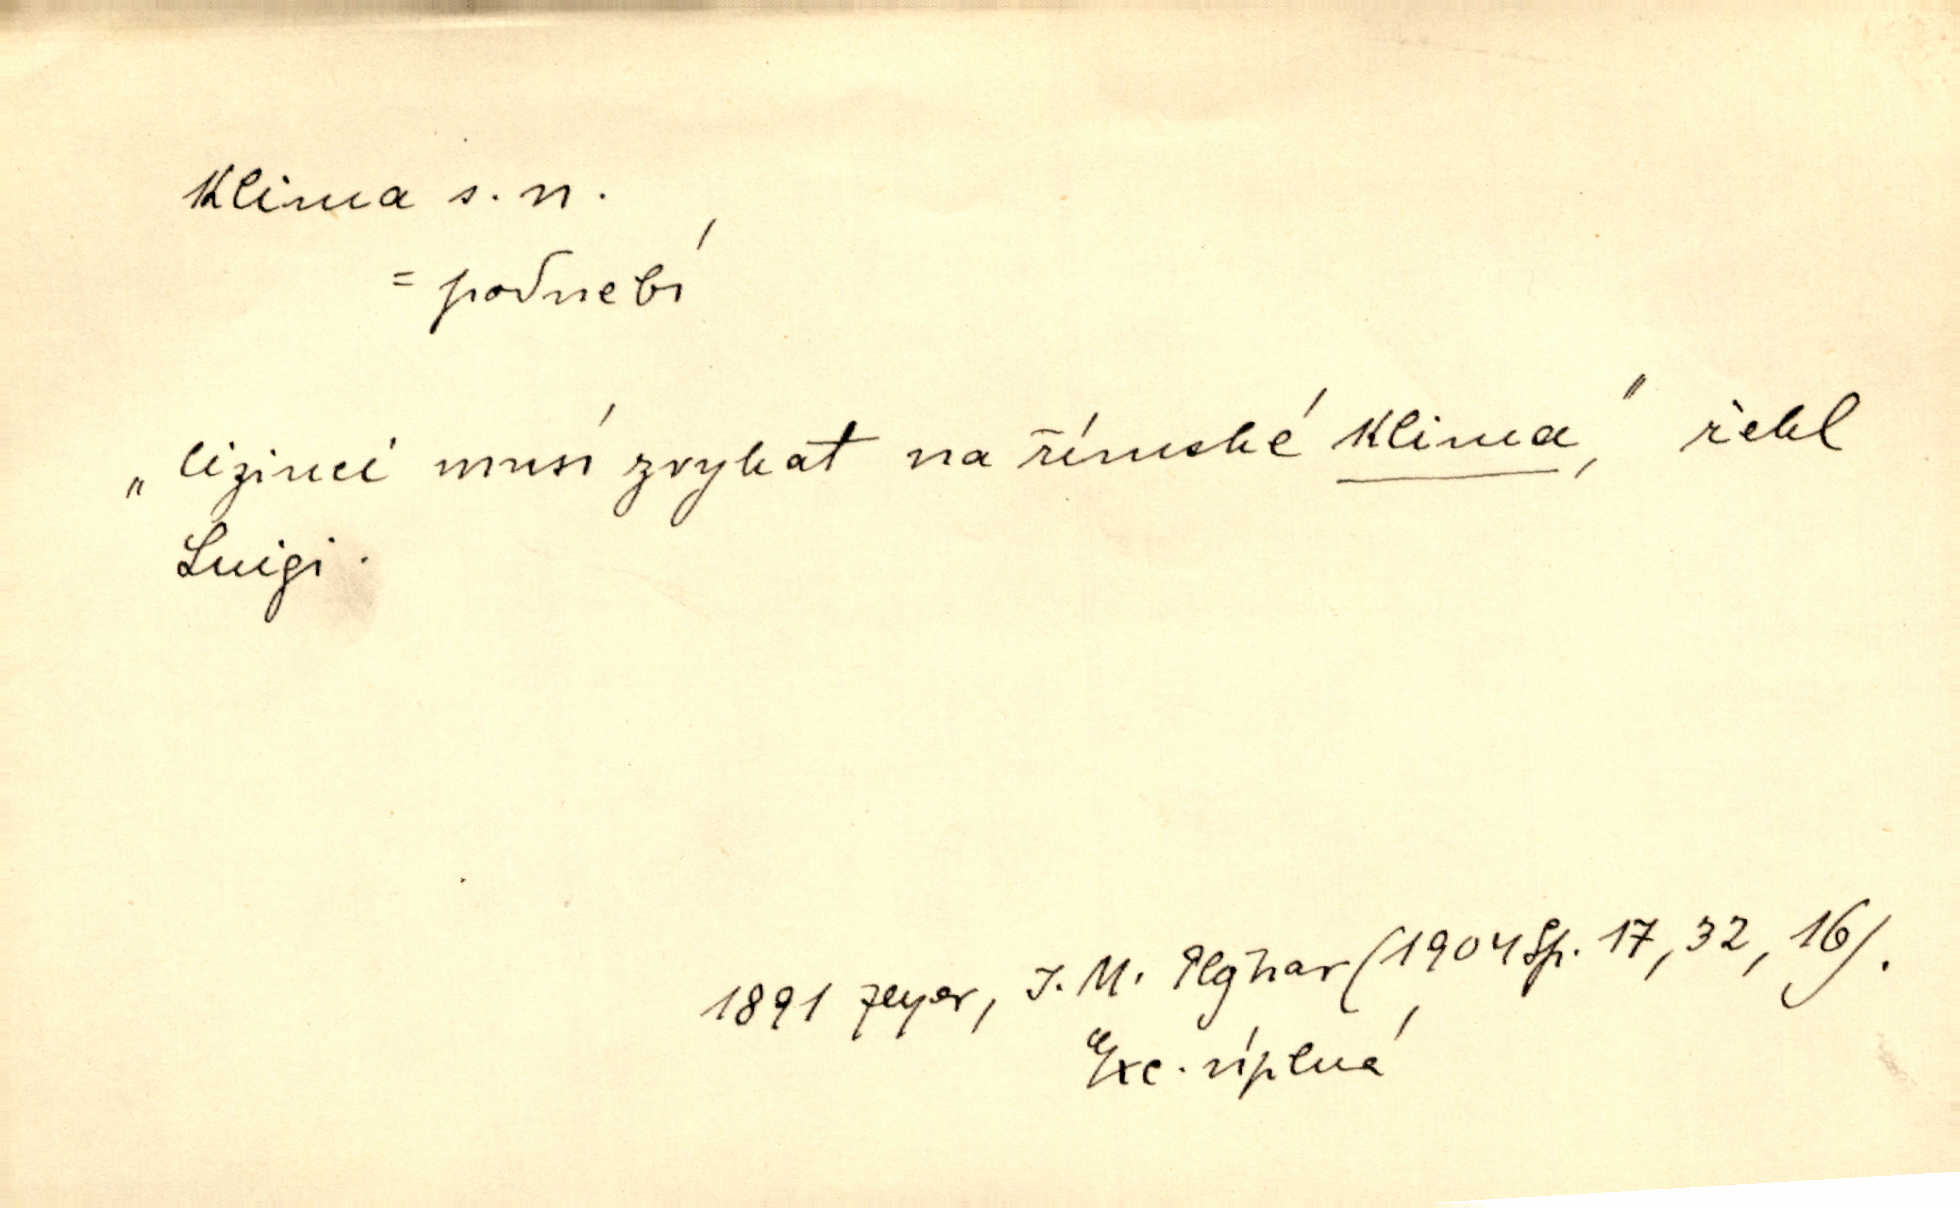 Klima s. n.
= podnebí
„Cizinci musí zvykat na římské klima," řekl
Luigi.
1891 Zeyer, J. M. Plojhar (1904 Sp. 17, 32, 16).
Exc. úplná